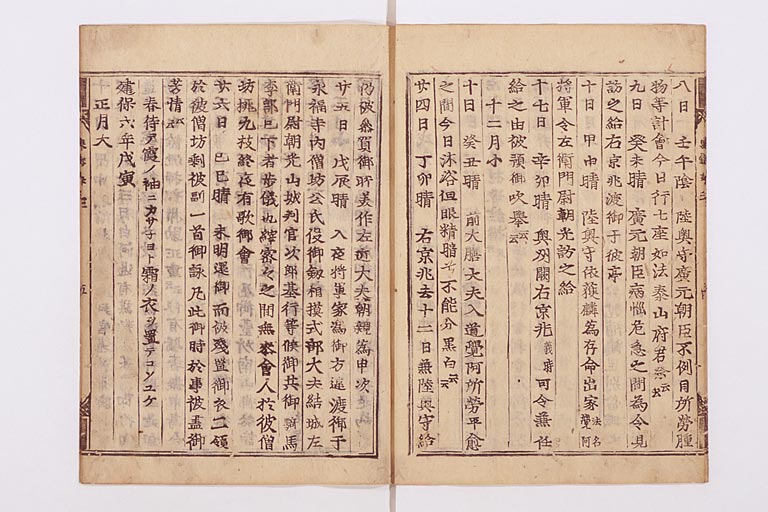 八日 壬午陰 陸奥守廣元朝臣不例目所労腫
物等計會今日行七座如法泰山府君祭云々
九日 癸未晴 廣元朝臣病悩危急之間為令見
訪之給右京兆渡御于彼亭
十日 甲申晴 陸奥守依獲麟為存命出家 法名覺阿
将軍令左衛門尉朝光訪之給
十七日 辛卯晴 奥州闕右京兆義時可令兼任
給之由被預御吹舉云々
十二月小
十日 癸丑晴 前大膳大夫入道覺阿所労平愈
之間今日沐浴但眼精暗兮不能分黒白云々
廿四日 丁卯晴 右京兆去十二日兼陸奥守給
仍被参賀御所美作左近大夫朝親為申次
廿五日 戊辰晴 入夜将軍家為御方違渡御于
永福寺内僧坊公氏役御劔相摸式部大夫結城左
衛門尉朝光山城判官次郎基行等候御共御騎馬
李部已下者歩儀也縡密々之間無参會人於彼僧
坊挑九枝終夜有歌御會
廿六日 己巳晴 未明還御而被残置御衣二領
於彼僧坊剰被副一首御詠乃此御時於事被盡御
芳情云々
春待テ霞ノ袖ニカサ子ヨト霜ノ衣ヲ置テコソユケ
建保六年戊寅
正月大